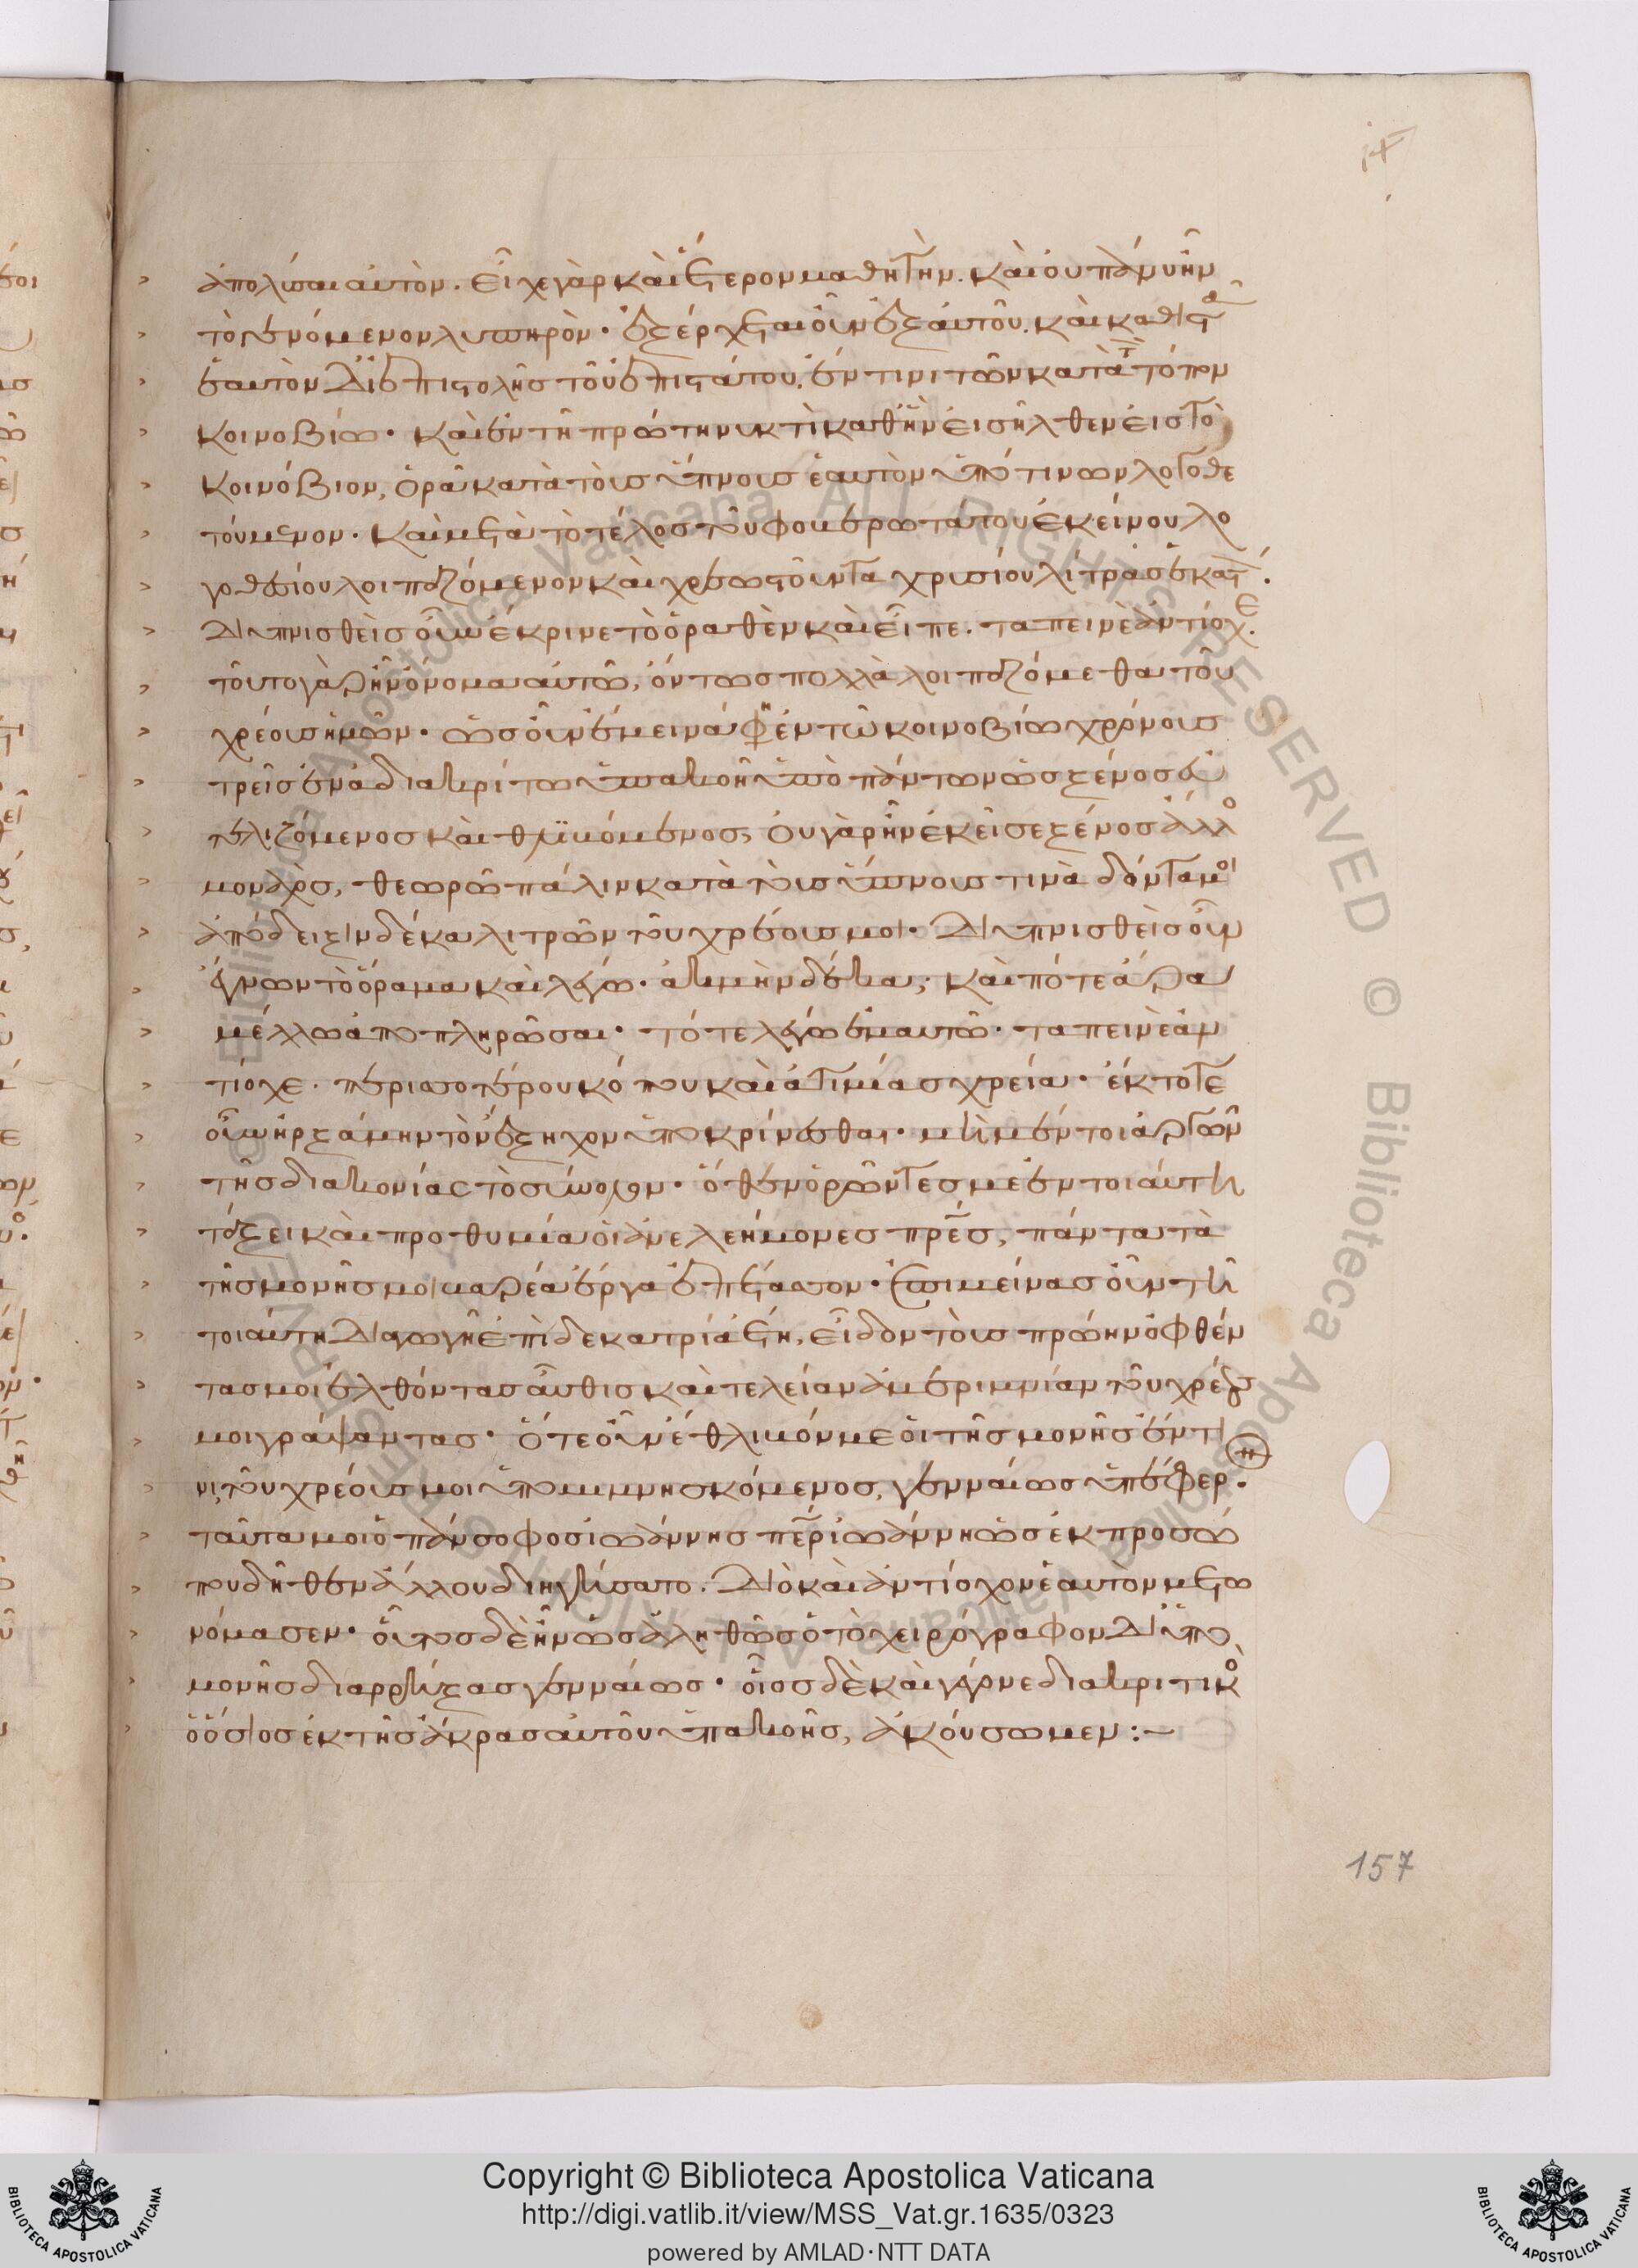 ἀπολῦσαι αὐτόν. εἶχε γὰρ καὶ ἕτερον μαθητήν. καὶ οὐ πάνυ ἦν
τὸ γινόμενον λυπηρόν· ἐξέρχεται οὖν ἐξ αὐτοῦ. καὶ καθιστᾶ
ἑαυτὸν δι' ἐπιστολῆς τοῦ ἐπιστάτου. ἔν τινι τῶν κατὰ τὸν πόντον
κοινοβίω· καὶ ἐν τῆ πρώτη νυκτὶ καθ' ἣν εἰσῆλθεν εἰς τὸ
κοινόβιον, ὁρᾶ κατὰ τοὺς ὕπνους ἑαυτὸν ὑπό τινων λογοθε
τούμενον· καὶ μετὰ τὸ τέλος τοῦ φοβερωτάτου ἐκείνου λο
γοθεσίου λοιπαζόμενον καὶ χρεωστοῦντα χρυσίου λίτρας ἑκατ.
διϋπνισθεὶς οὖν ἔκρινε τὸ ὁραθὲν καὶ εἶπε. ταπεινὲ ἀντίοχε.
τοῦτο γὰρ ἦν ὄνομα αὐτῶ, ὄντως πολλὰ λοιπαζόμεθα τοῦ
χρέους ἡμῶν· ὡς οὖν ἔμεινα φη ἐν τῶ κοινοβίω χρόνους
τρεῖς ἐν ἀδιακρίτω ὑπακοῆ ὑπὸ πάντων ὡς ξένος ἐ
τελιζόμενος καὶ θλιβόμενος, οὐ γὰρ ἦν ἐκεῖσε ξένος ἄλλο
μοναχὸς, θεωρῶ πάλιν κατὰ τοὺς ὕπνους τινὰ δόντα μοι
ἀπόδειξιν δέκα λιτρῶν τοῦ χρέους μου. διϋπνισθεὶς οὖν
ἔγνων τὸ ὅραμα καὶ λέγω· ἀκμὴν δέκα; καὶ πότε ἄρα
μέλλω ἀποπληρῶσαι· τότε λέγω ἐμαυτῶ. ταπεινὲ ἀν
τίοχε. περισσοτέρου κόπου καὶ ἀτιμίας χρεία· ἔκτοτε
οὖν ἠρξάμην τὸν ἔξηχον ὑποκρίνεσθαι. μὴ μέντοι ἀργῶν
τῆς διακονίας τὸ σύνολον· ὅθεν ὁρῶντες με ἐν τοιαύτη
τάξει καὶ προθυμία οἱ ἀνελεήμονες πρες, πάντα τὰ
τῆς μονῆς μοι βαρέα ἔργα ἐπέταττον· ἐπιμείνας οὖν τῆ
τοιαύτη διαγωγῆ ἐπὶ δεκατρία ἔτη, εἶδον τοὺς πρώην ὀφθέν
τας μοι ἐλθόντας αὖθις καὶ τελείαν ἀμεριμνίαν τοῦ χρέους
μοι γράψαντας· ὅτε οὖν ἔθλιβόν με οἱ τῆς μονῆς ἔν τι
νι, τοῦ χρέους μου ὑπομιμνησκόμενος, γενναίως ὑπέφερ.
ταῦτα μοι ὁ πάνσοφος ἰωάννης περ ἰωάννη ὡς ἐκ προσώ
που δῆθεν ἄλλου διηγήσατο. διὸ καὶ ἀντίοχον ἑαυτὸν μετω
νόμασεν. οὗτος δὲ ἦν ὡς ἀληθῶς ὁ τὸ χειρόγραφον δι' ὑπο
μονῆς διαρρήξας γενναίως· οἷος δὲ καὶ γέγονε διακριτικὸ
ὁ ὅσιος ἐκ τῆς ἄκρας αὐτοῦ ὑπακοῆς, ἀκούσωμεν:—
157
Copyright © Biblioteca Apostolica Vaticana
http://digi.vatlib.it/view/MSS_Vat.gr.1635/0323
powered by AMLAD·NTT DATA
BIBLIOTECA APOSTOLICA VATICANA
BIBLIOTECA APOSTOLICA VATICANA